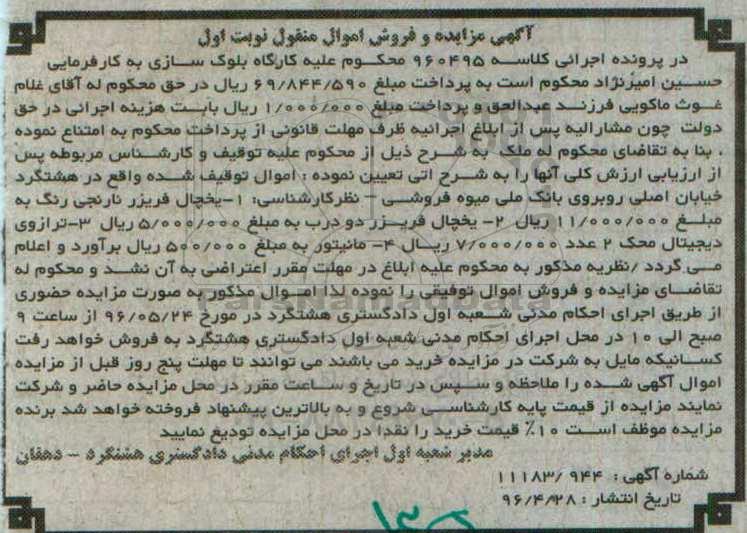 آگهی مزایده و فروش اموال منقول نوبت اول
در پرونده اجرائی کلاسه ۹۶۰۴۹۵ محکوم علیه کارگاه بلوک سازی به کارفرمایی
حسین امیرنژاد محکوم است به پرداخت مبلغ ۶۹/۸۴۴/۵۹۰ ریال در حق محکوم له آقای غلام
غوث ماکویی فرزند عبدالحق و پرداخت مبلغ ۱/۰۰۰/۰۰۰ ریال بابت هزینه اجرائی در حق
دولت چون مشارالیه پس از ابلاغ اجرائیه ظرف مهلت قانونی از پرداخت محکوم به امتناع نموده
، بنا به تقاضای محکوم له ملک به شرح ذیل از محکوم علیه توقیف و کارشناس مربوطه پس
از ارزیابی ارزش کلی آنها را به شرح اتی تعیین نموده : اموال توقیف شده واقع در هشتگرد
خیابان اصلی روبروی بانک ملی میوه فروشی - نظرکارشناسی: ۱-یخچال فریزر نارنجی رنگ به
مبلغ ۱۱/۰۰۰/۰۰۰ ریال ۲- یخچال فریزر دو درب به مبلغ ۵/۰۰۰/۰۰۰ ریال ۳-ترازوی
دیجیتال محک ۲ عدد ۷/۰۰۰/۰۰۰ ریال ۴- مانیتور به مبلغ ۵۰۰/۰۰۰ ریال برآورد و اعلام
می گردد /نظریه مذکور به محکوم علیه ابلاغ در مهلت مقرر اعتراضی به آن نشد و محکوم له
تقاضای مزایده و فروش اموال توقیفی را نموده لذا اموال مذکور به صورت مزایده حضوری
از طریق اجرای احکام مدنی شعبه اول دادگستری هشتگرد در مورخ ۹۶/۰۵/۲۴ از ساعت ۹
صبح الی ۱۰ در محل اجرای احکام مدنی شعبه اول دادگستری هشتگرد به فروش خواهد رفت
کسانیکه مایل به شرکت در مزایده خرید می باشند می توانند تا مهلت پنج روز قبل از مزایده
اموال آگهی شده را ملاحظه و سپس در تاریخ و ساعت مقرر در محل مزایده حاضر و شرکت
نمایند مزایده از قیمت پایه کارشناسی شروع و به بالاترین پیشنهاد فروخته خواهد شد برنده
مزایده موظف است ۱۰٪ قیمت خرید را نقدا در محل مزایده تودیع نمایید
مدیر شعبه اول اجرای احکام مدنی دادگستری هشتگرد - دهقان
شماره آگهی : ۱۱۱۸۳/۹۴۴
تاریخ انتشار : ۹۶/۴/۲۸